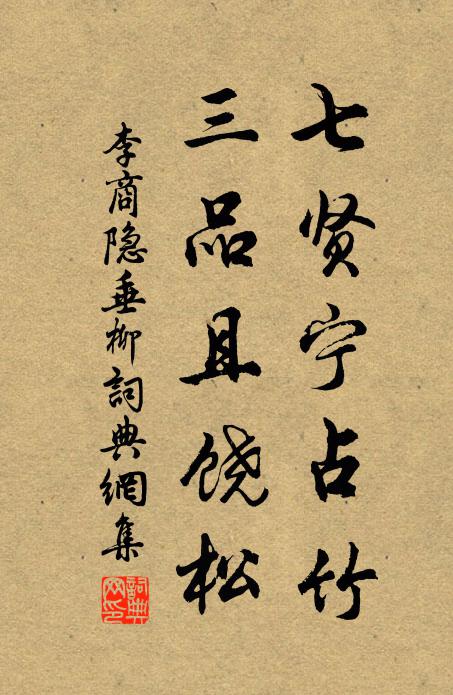 七贤宁占竹
三品且饶松
李商隐垂柳詞典網集
詞典网印